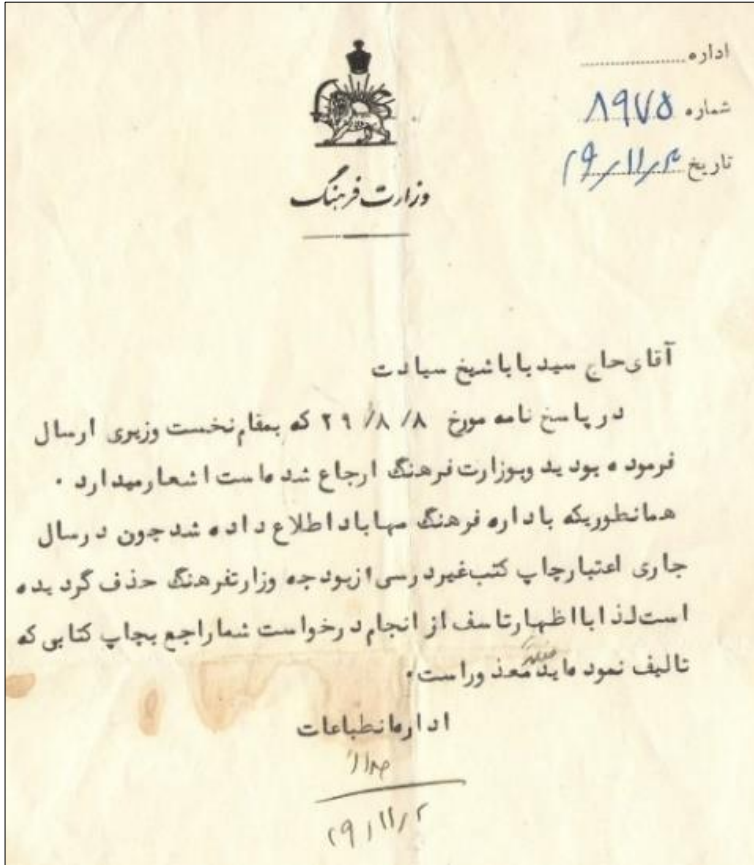 اداره
شماره ۸۹۷۵
تاریخ ۲۹/۱۱/۲
وزارت فرهنگ
آقای حاج سید بابا شیخ سیادت
در پاسخ نامه مورخ ۲۹/۸/۸ که بمقام نخست وزیری ارسال
فرموده بودید و بوزارت فرهنگ ارجاع شده است اشعار میدارد .
همانطوریکه باداره فرهنگ مهاباد اطلاع داده شد چون در سال
جاری اعتبار چاپ کتب غیر درسی از بودجه وزارتفرهنگ حذف گردیده
است لذا با اظهار تاسف از انجام درخواست شما راجع بچاپ کتابی که
تالیف نموده اید معذور است .
اداره انطباعات
۲۹/۱۱/۲